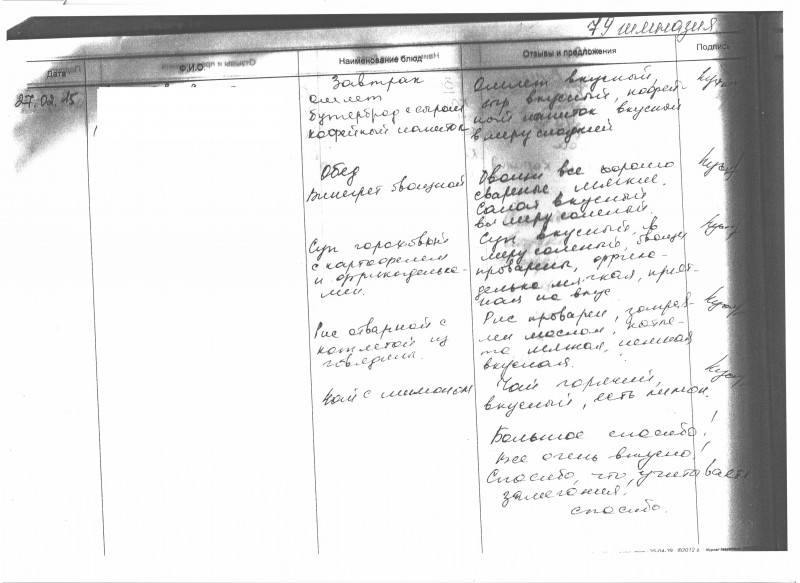 79 гимназия
Дата
Ф.И.О.
Наименование блюд
Отзывы и предложения
Подпись
27.02.15
Завтрак
омлет
бутерброд с сыром
кофейный напиток
Омлет вкусный,
сыр вкусный, кофей-
ный напиток вкусный
в меру сладкий
Обед
Винегрет овощной
Овощи все хорошо
сварены мягкие.
Салат вкусный
в меру соленый.
Суп гороховый
с картофелем
и фрикаделька-
ми.
Суп вкусный, в
меру соленый, овощи
проварены, фрика-
делька мягкая, прият-
ная на вкус
Рис отварной с
котлетой из
говядины.
Рис проварен, заправ-
лен маслом, котле-
та мягкая, нежная
вкусная.
Чай с лимоном
Чай горячий,
вкусный, есть лимон.
Большое спасибо!
Все очень вкусно!
Спасибо, что учитываете
замечания!
спасибо.